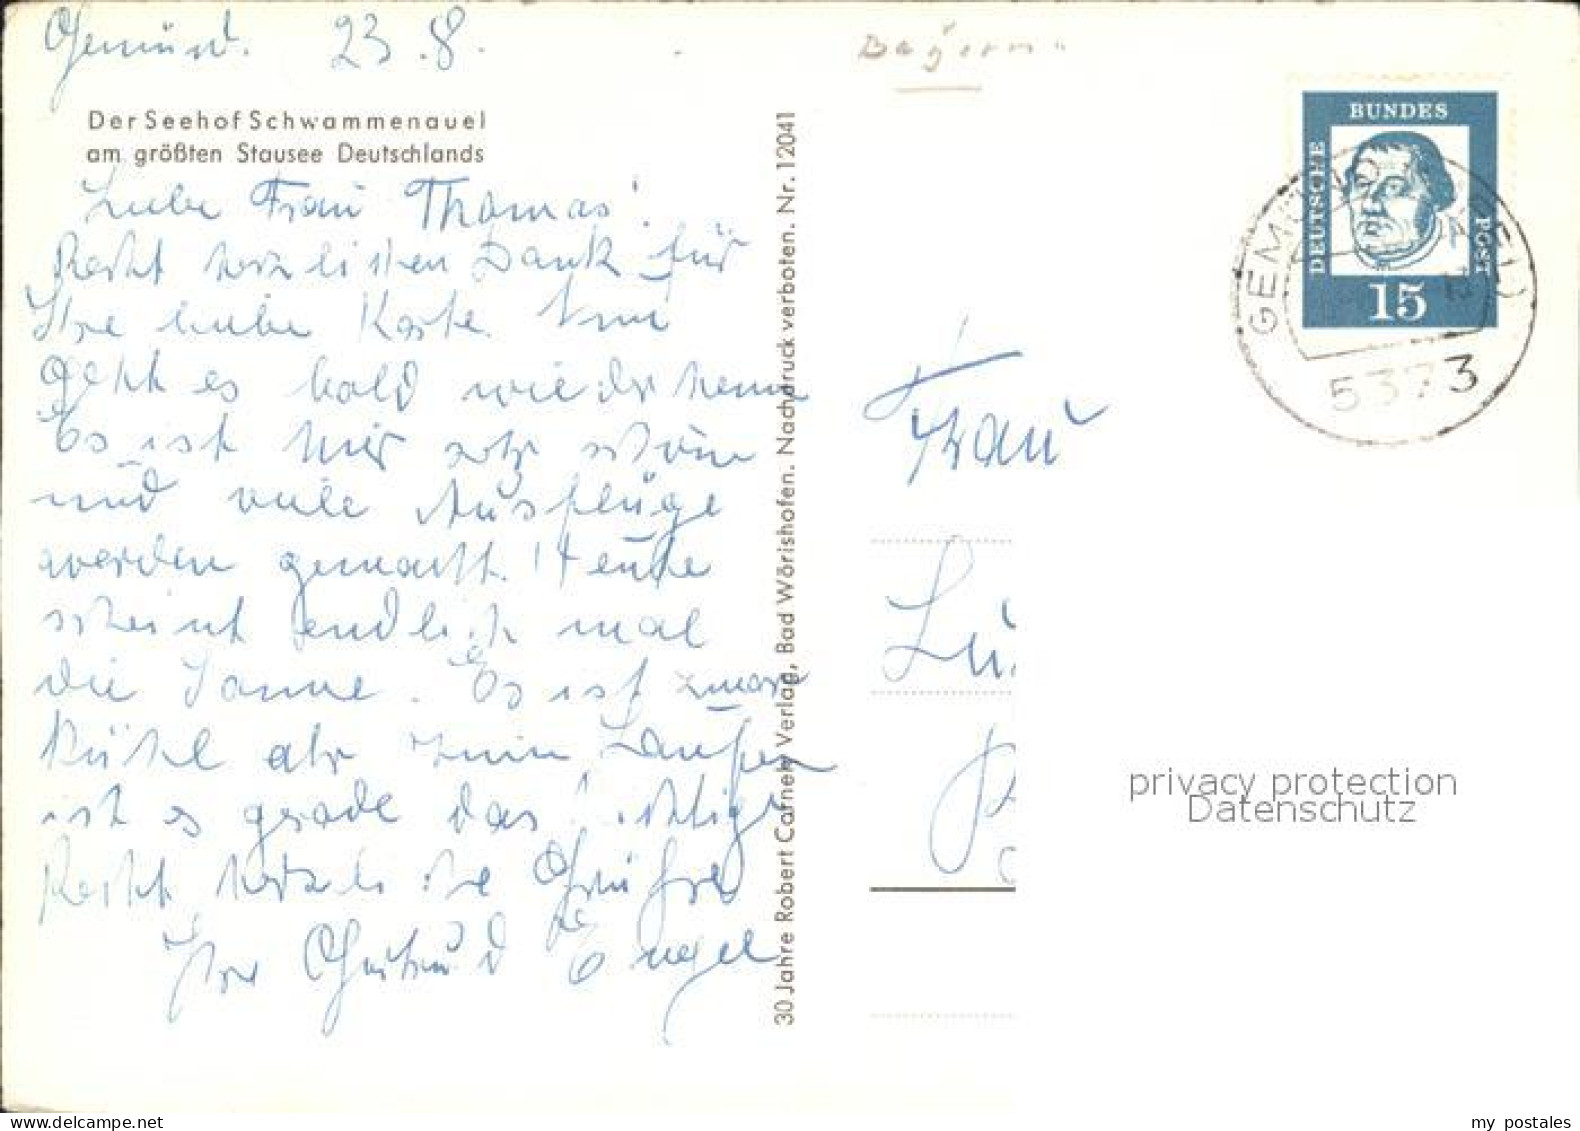 Gemünd. 23.8.
Bayern
Der Seehof Schwammenauel
am größten Stausee Deutschlands
Liebe Frau Thomas!
Recht herzlichen Dank für
Ihre liebe Karte. Nun
geht es bald wieder heim
Es ist hier sehr schön
und viele Ausflüge
werden gemacht. Heute
scheint endlich mal
die Sonne. Es ist zwar
kühl aber zum Laufen
ist es gerade das richtige
Recht herzliche Grüße
Ihre Gertrud Engel
30 Jahre Robert Carnely Verlag, Bad Wörishofen. Nachdruck verboten. Nr. 12041
BUNDES
DEUTSCHE
POST
15
GEMÜND (EIFEL)
5373
Frau
privacy protection
Datenschutz
my postales